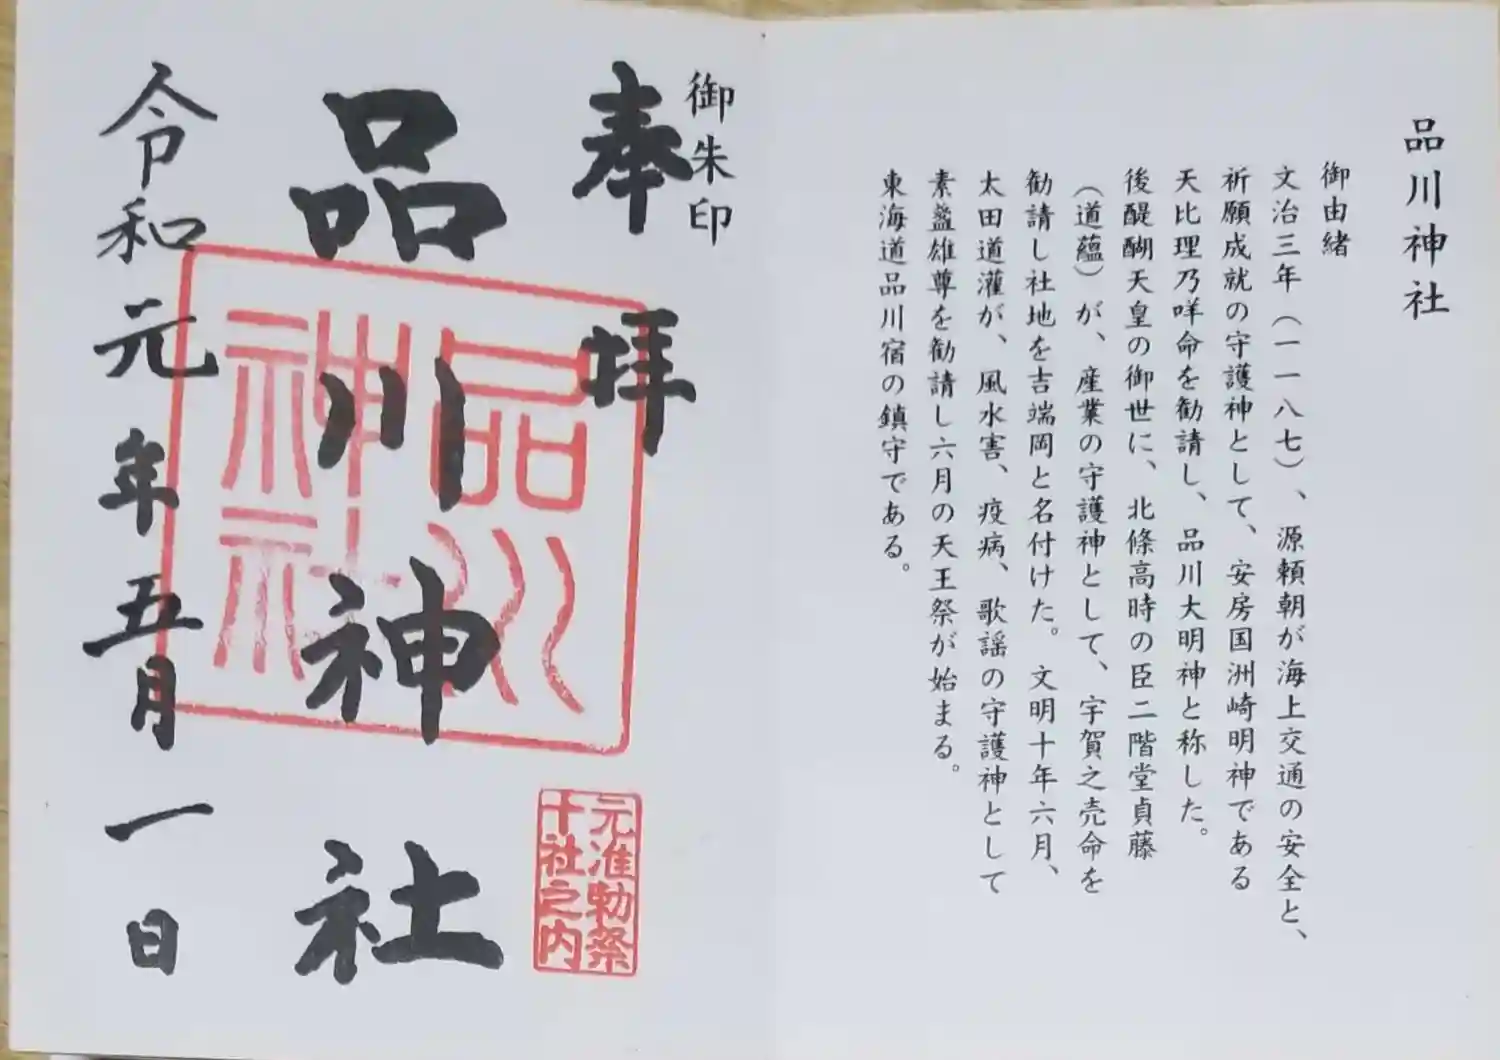 品川神社
御由緒
文治三年（一一八七）、源頼朝が海上交通の安全と、
祈願成就の守護神として、安房国洲崎明神である
天比理乃咩命を勧請し、品川大明神と称した。
後醍醐天皇の御世に、北條高時の臣二階堂貞藤
（道蘊）が、産業の守護神として、宇賀之売命を
勧請し社地を吉端岡と名付けた。文明十年六月、
太田道灌が、風水害、疫病、歌謡の守護神として
素盞雄尊を勧請し六月の天王祭が始まる。
東海道品川宿の鎮守である。
御朱印
奉拝
品川神社
令和元年五月一日
品川
神社
元准勅祭
十社之内